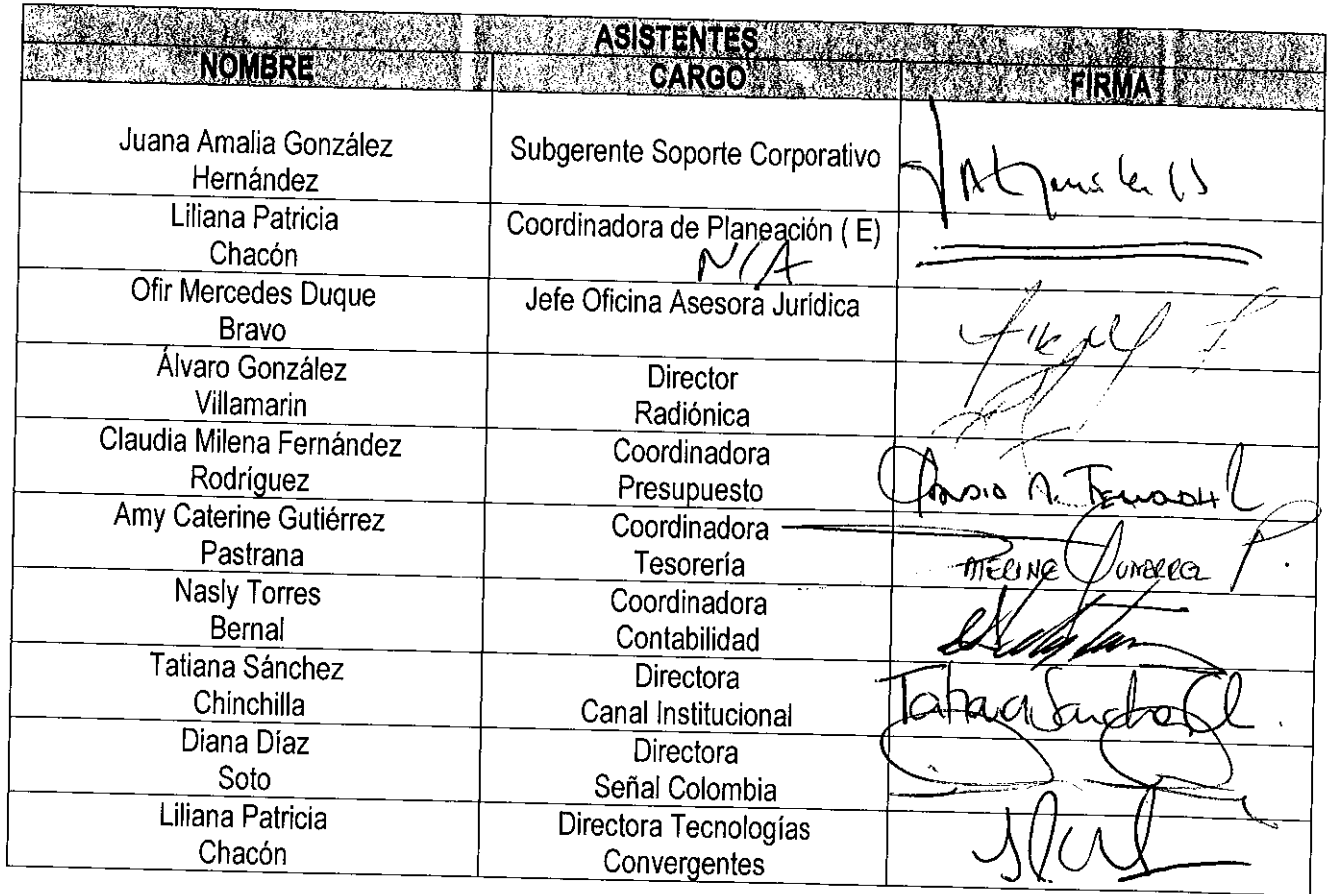 ASISTENTES
NOMBRE CARGO FIRMA
Juana Amalia González
Hernández
Subgerente Soporte Corporativo
Liliana Patricia
Chacón
Coordinadora de Planeación ( E)
N/A
Ofir Mercedes Duque
Bravo
Jefe Oficina Asesora Jurídica
Álvaro González
Villamarin
Director
Radiónica
Claudia Milena Fernández
Rodríguez
Coordinadora
Presupuesto
Amy Caterine Gutiérrez
Pastrana
Coordinadora
Tesorería
Nasly Torres
Bernal
Coordinadora
Contabilidad
Tatiana Sánchez
Chinchilla
Directora
Canal Institucional
Tatiana Sanchez Ch.
Diana Díaz
Soto
Directora
Señal Colombia
Liliana Patricia
Chacón
Directora Tecnologías
Convergentes